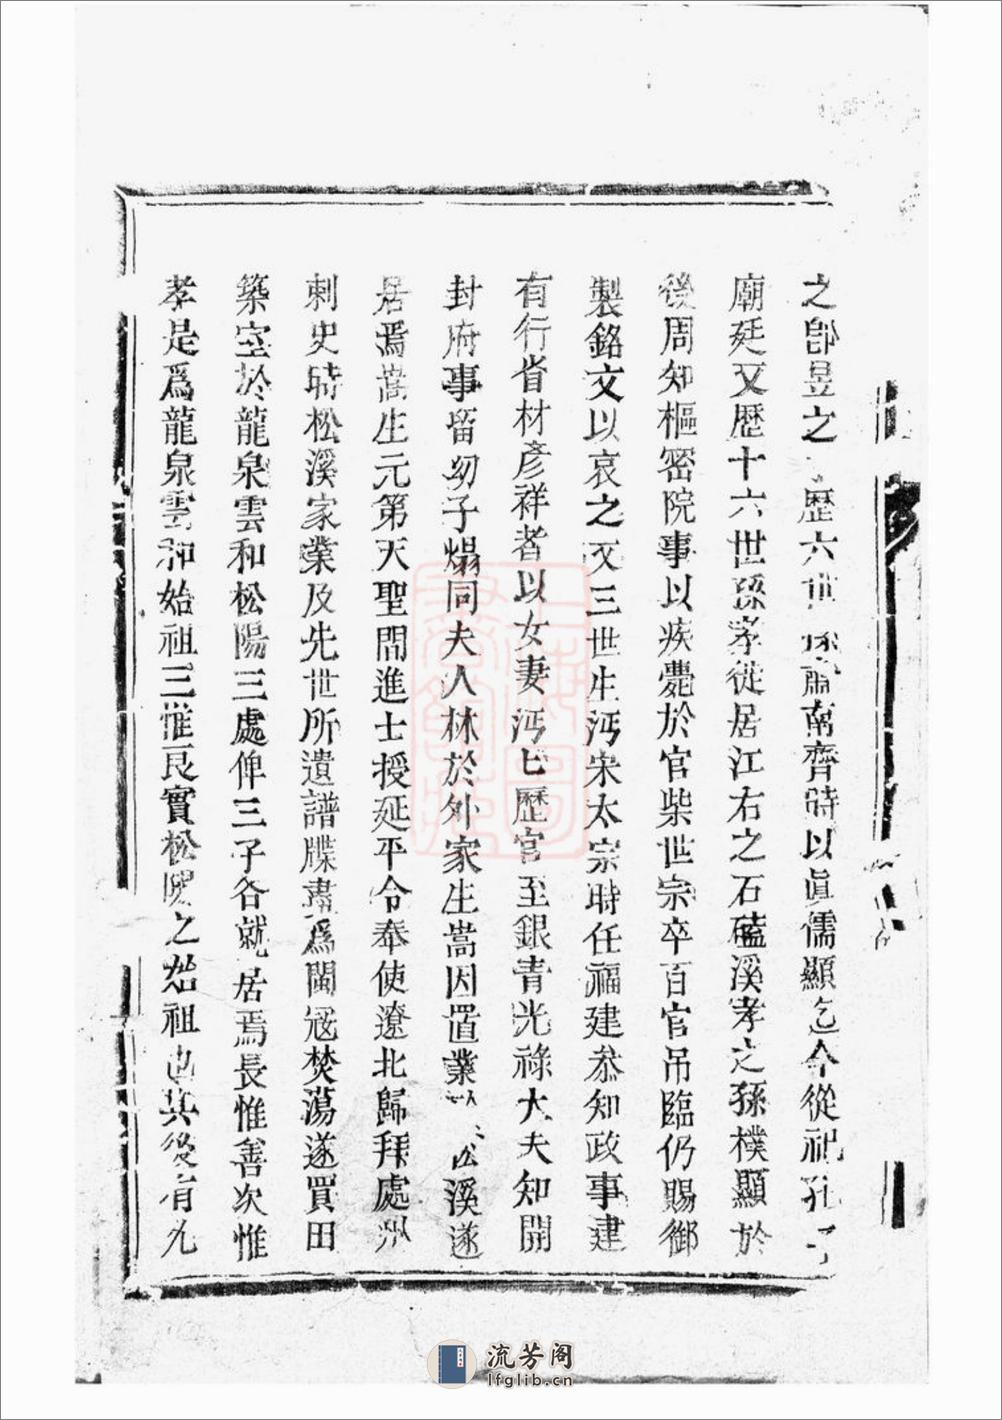 之卽昱之歷六世孫肅南齊時以眞儒顯迄今從祀孔
廟廷又歷十六世孫孝從居江右之石礚溪孝之孫樸顯於
後周知樞密院事以疾薨於官柴世宗卒百官吊臨仍賜御
製銘文以哀之又三世生沔宋太宗時任福建叅知政事建
有行省材彥祥者以女妻沔七歷官至銀青光祿大夫知開
封府事留幼子煬同夫人林於外家生嵩因置業松溪遂
居焉嵩生元第天聖間進士授延平令奉使遼北歸拜處州
刺史時松溪家業及先世所遺譜牒肅爲閩冦焚蕩遂買田
築室於龍泉雲和松陽三處俾三子各就居焉長惟善次惟
孝是爲龍泉雲和始祖三惟良實松陽之始祖也其後有九
流芳阁
lfglib.cn